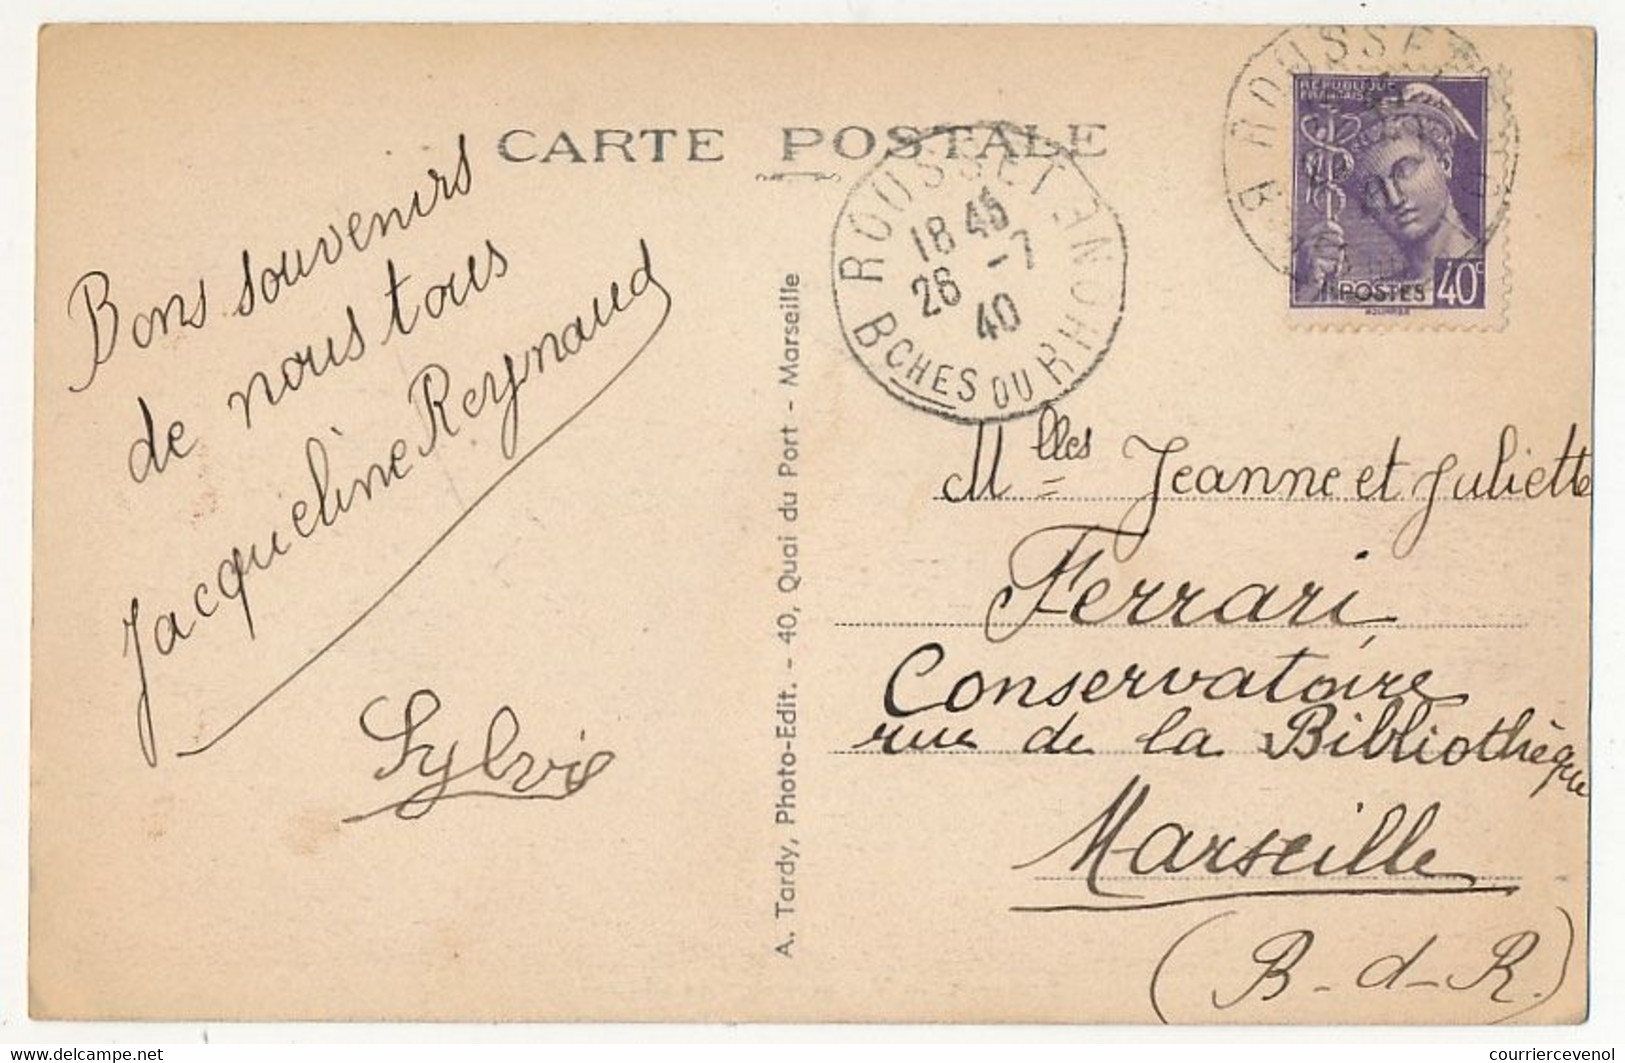 CARTE POSTALE
Bons souvenirs
de nous tous
Jacqueline Reynaud
Sylvie
A. Tardy, Photo-Edit. - 40, Quai du Port - Marseille
ROUSSET
18 45
26 -7
40
BCHES DU RHONE
ROUSSET
B
REPUBLIQUE
FRANCAISE
POSTES 40c
Mlles Jeanne et Juliette
Ferrari
Conservatoire
rue de la Bibliothèque
Marseille
(B-d-R.)
www.courriercevenol
courriercevenol